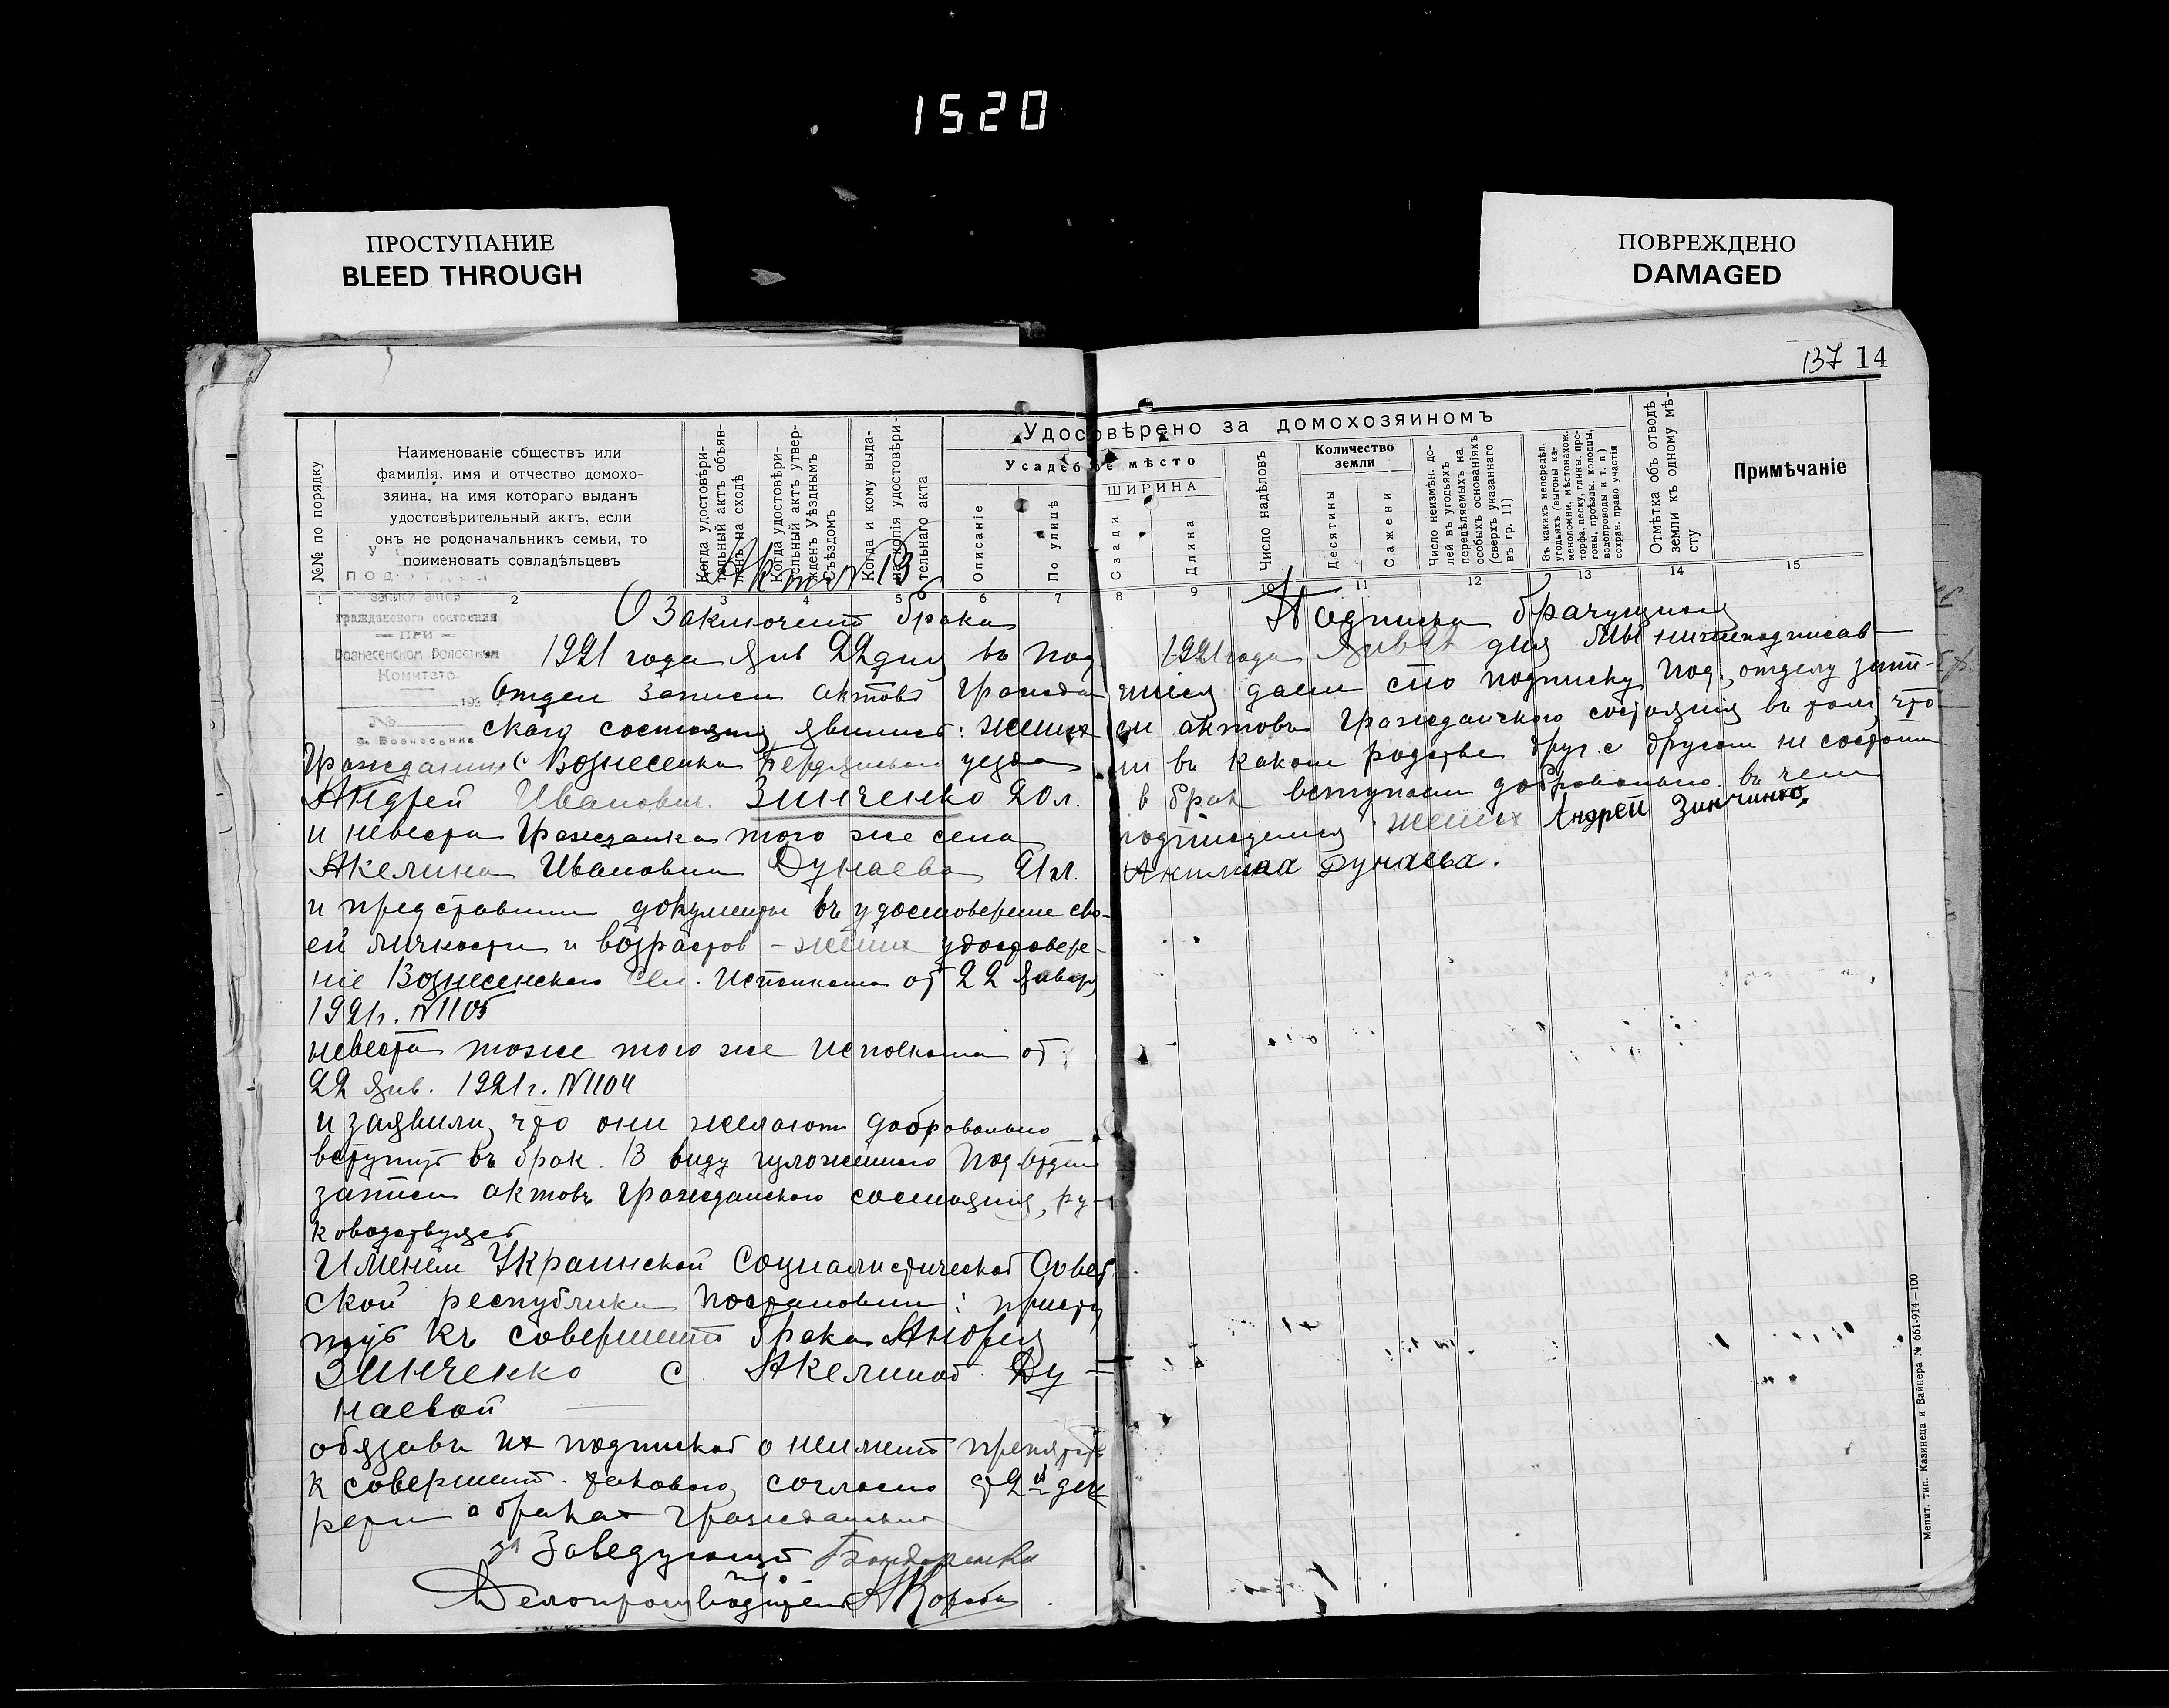 1520
ПРОСТУПАНИЕ
BLEED THROUGH
ПОВРЕЖДЕНО
DAMAGED
137 14
Удостовѣрено за домохозяиномъ
№№ по порядку
Наименованіе сбществъ или
фамилія, имя и отчество домохо-
зяина, на имя котораго выданъ
удостовѣрительный актъ, если
онъ не родоначальникъ семьи, то
поименовать совладѣльцевъ
Когда удостовѣри-
тельный актъ объяв-
ленъ на сходѣ
Когда удостовѣри-
тельный актъ утвер-
жденъ Уѣзднымъ
Съѣздомъ
Когда и кому выда-
на копія удостовѣри-
тельнаго акта
Усадебное мѣсто
Описаніе
По улицѣ
ШИРИНА
Сзади
Длина
Число надѣловъ
Количество
земли
Десятины
Сажени
Число неизмѣн. до-
лей въ угодьяхъ
передѣляемыхъ на
особыхъ основаніяхъ
(сверхъ указаннаго
въ гр. 11)
Въ какихъ непередѣл.
угодьяхъ (выгоны ка-
меноломни, мѣстонахож.
торфа, песку, глины, про-
гоны, проѣзды, колодцы,
водопроводы и т. п)
сохран. право участія
Отмѣтка объ отводѣ
земли къ одному мѣ-
сту
Примѣчаніе
1 2 3 4 5 6 7 8 9 10 11 12 13 14 15
Актъ N 13
ПОДОТДЕЛ
записи актор
гражданского состояния
— ПРИ —
Вознесенском Волостном
Комитэтэ.
192
№
с. Вознесенка
О Заключенiи брака
1921 года янв 22 дня въ Под
Отдел записи актовъ граждан
скаго состоянiя явились: жених
Гражданинъ с Вознесенки Бердянскаго уезда
Андрей Иванович. Зинченко 20 л.
и невеста гражданка того же села
Акелина Ивановна Дунаева 21 л.
и представили документы въ удостоверенiе сво-
ей личности и возрастов - жених удостовере-
нiе Вознесенскаго Сел. Исполкома от 22 января
1921 г. N1105
невеста тоже того же исполкома от
22 янв. 1921 г. N1104
и заявили, что они желают добровольно
вступить въ брак. В виду изложеннаго Под отдел
записи актовъ гражданского состоянiя, ру-
ководствуясь
Именем Украинской Социалистической Совет
ской республики постановил: присту
пить къ совершенiю брака Андрея
Зинченко с Акелиной Ду-
наевой
обязавъ их подпиской о неименiи препятств
к совершенiю такового, согласно
о браках гражданских
за Заведующего Бондаренко
Делопроизводитель
Подписка брачущихся
1921 года янв 22 дня Мы нижеподписав-
шiеся даем сiю подписку под. отделу запи-
си актовъ гражданского состоянiя въ том, что
ни въ каком родстве друг с другом не состоим
в брак вступаем добровольно въ чем
подписуемся жених Андрей Зинчинко
Акилина Дунаева.
Мепит. тип. Казинеца и Вайнера № 661-914—100